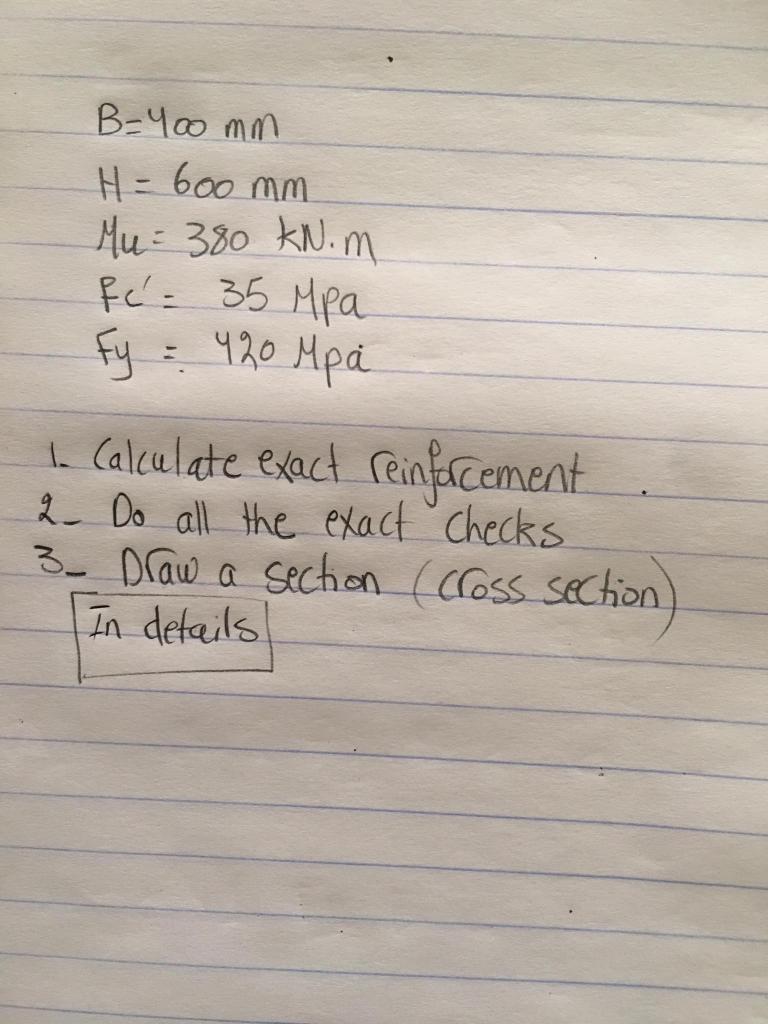 B=400 mm
H = 600 mm
Mu = 380 kN.m
Fc' = 35 Mpa
Fy = 420 Mpa
1- Calculate exact reinforcement .
2- Do all the exact checks
3- Draw a section (cross section)
In details